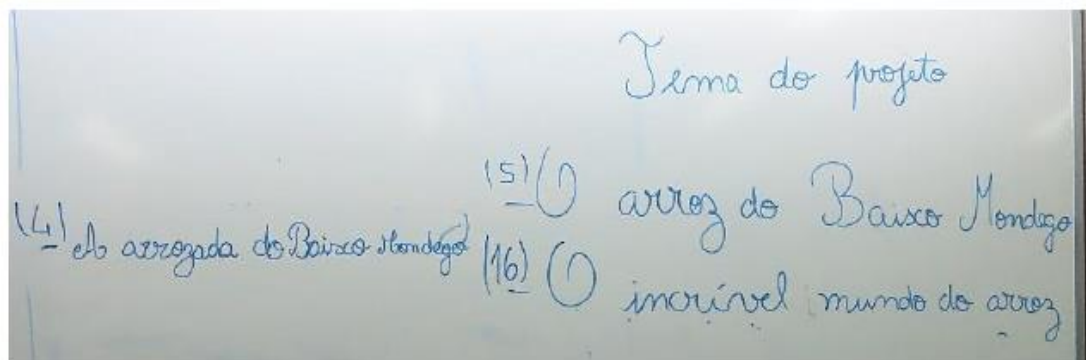 Tema do projeto
(4) A arrozada do Baixo Mondego
(5) O arroz do Baixo Mondego
(16) O incrível mundo do arroz